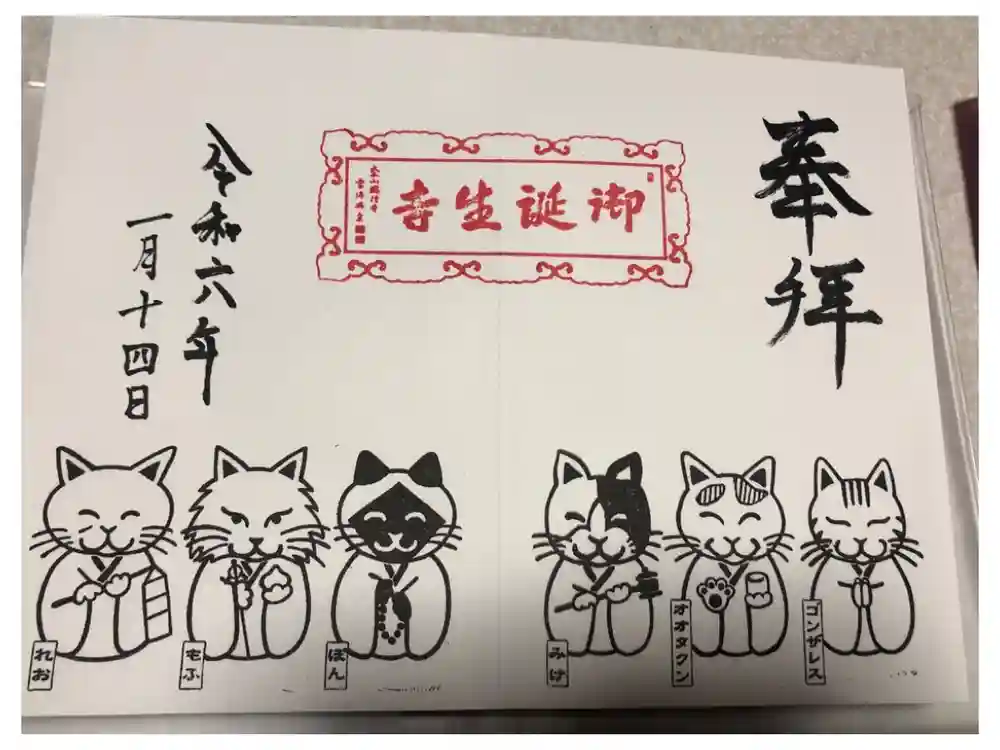 奉拝
御誕生寺
令和六年
一月十四日
ゴンザレス
オオタクン
みけ
ぽん
もふ
れお